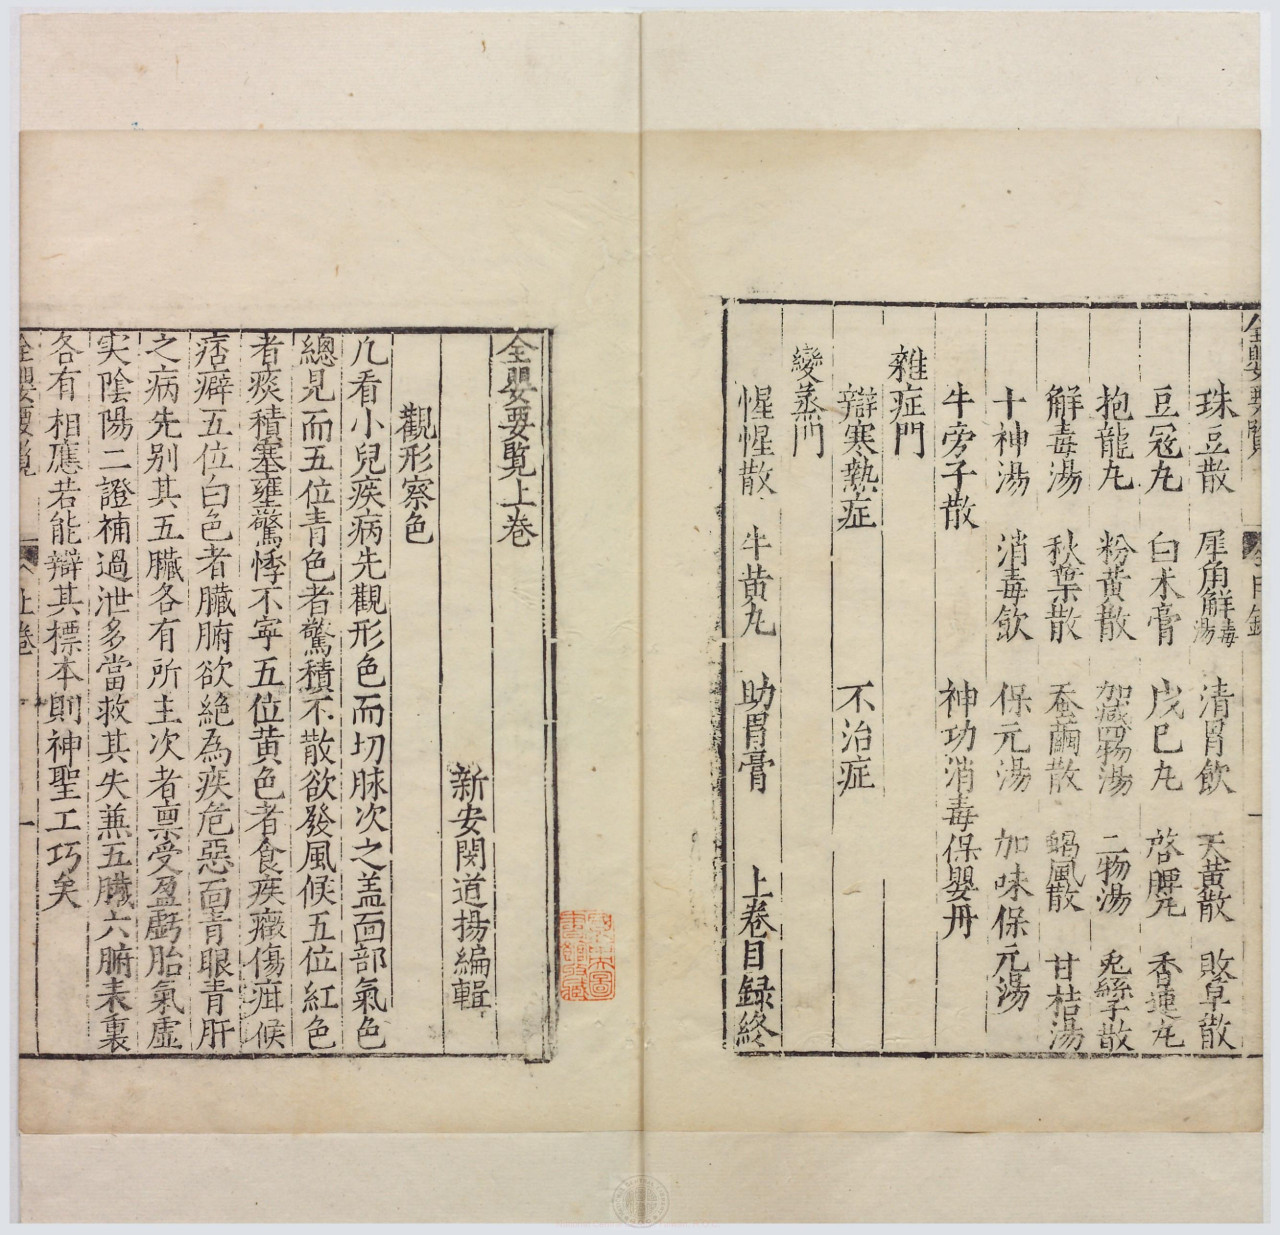 全嬰要覽
目録
一
珠豆散 犀角解毒湯 清胃飲 天黄散 敗草散
豆寇丸 白术膏 戊巳丸 啓脾丸 香連丸
抱龍丸 粉黄散 加減四物湯 二物湯 兎絲子散
解毒湯 秋葉散 蚕繭散 蝎風散 甘桔湯
十神湯 消毒飲 保元湯 加味保元湯
牛旁子散 神功消毒保嬰丹
雜症門
辯寒熱症 不治症
變蒸門
惺惺散 牛黄丸 助胃膏 上卷目録終
全嬰要覧上卷
新安閔道揚編輯
觀形察色
凢看小兒疾病先觀形色而切脉次之盖面部氣色
總見而五位青色者驚積不散欲發風候五位紅色
者痰積塞壅驚悸不寧五位黄色者食疾癥傷疳候
痞癖五位白色者臟腑欲絶為疾危惡面青眼青肝
之病先别其五臟各有所主次者禀受盈虧胎氣虚
实陰陽二證補過泄多當救其失兼五臟六腑表裏
各有相應若能辯其標本則神聖工巧矣
全嬰要覧
上卷
一